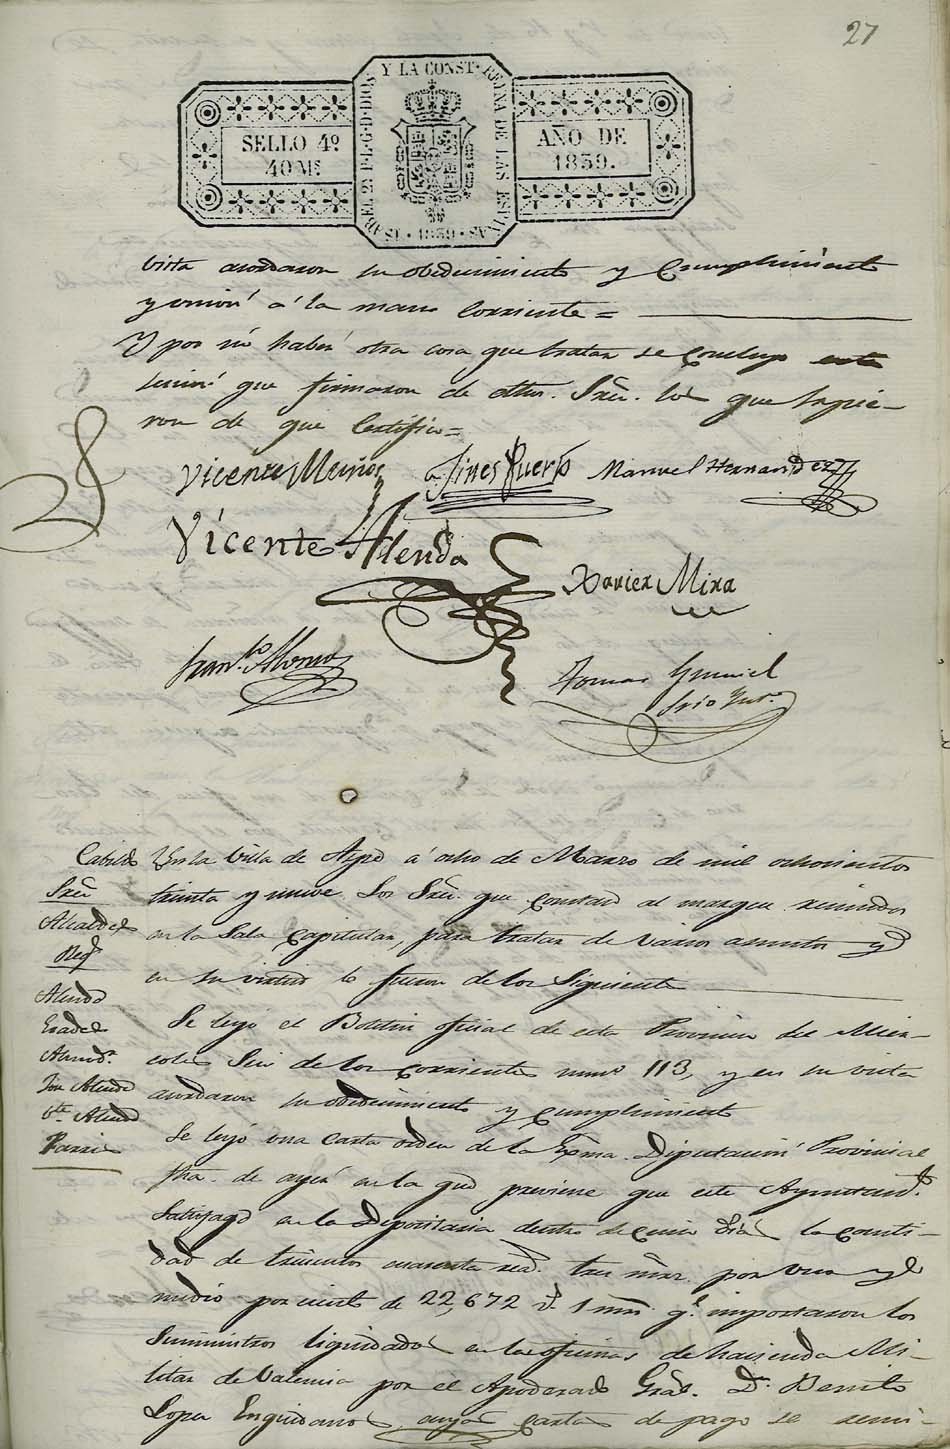 27
Y LA CONST. REYNA DE LAS ESPAÑAS
ISABEL 2ª P. L. G. D. DIOS
SELLO 4º
40 Ms.
AÑO DE
1839.
1839
vista acordaron su obedecimiento y cumplimiento
y union á la mano corriente =
Y por no haber otra cosa que tratar se concluyo esta
sesion que firmaron de dhos. Sres. los que supie-
ron de que certifico =
Vicente Muños
Gines Puerto
Manuel Hernandez
Vicente Alenda
Xavier Mira
Franco. Alonso
Tomas
Srio
Cabildo
Sres
Alcaldes
Regs.
Alendo
Alendo
Alendo
En la Villa de Aspe á ocho de Marzo de mil ochocientos
treinta y nueve Los Sres. que constan al margen reunidos
en la Sala Capitular, para tratar de varios asuntos y
en su virtud lo fueron de los siguiente
Se leyó el Boletin oficial de esta Provincia del Mier-
coles Seis de los corrientes num.º 113, y en su vista
acordaron su obedecimiento y cumplimiento
Se leyó una carta orden de la Exma. Diputacion Provincial
fha. de ayer en la que previene que este Ayuntam.to
satisfaga en la Depositaria dentro de cinco dias la canti-
dad de trescientos cuarenta rea. tres mrs. por uno y
medio por ciento de 22,672 r. 1 mrs. q.e importaron los
Suministros liquidados en las oficinas de hacienda Mi-
litar de Valencia por el Apoderado Gral. Dn. Benito
Lopez Enguidanos, cuyas cartas de pago se remi-